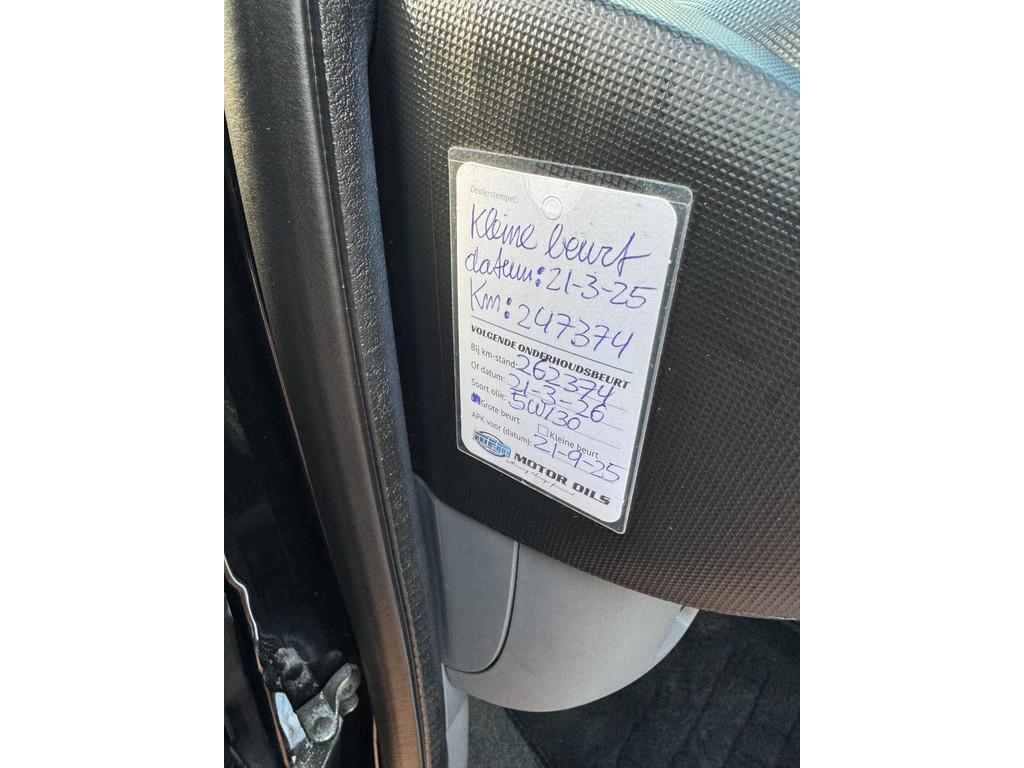 Dealerstempel:
Kleine beurt
datum: 21-3-25
Km: 247374
VOLGENDE ONDERHOUDSBEURT
Bij km-stand: 262374
Of datum: 21-3-26
Soort olie: 5W130
Grote beurt Kleine beurt
APK voor (datum): 21-9-25
MOTOR OILS